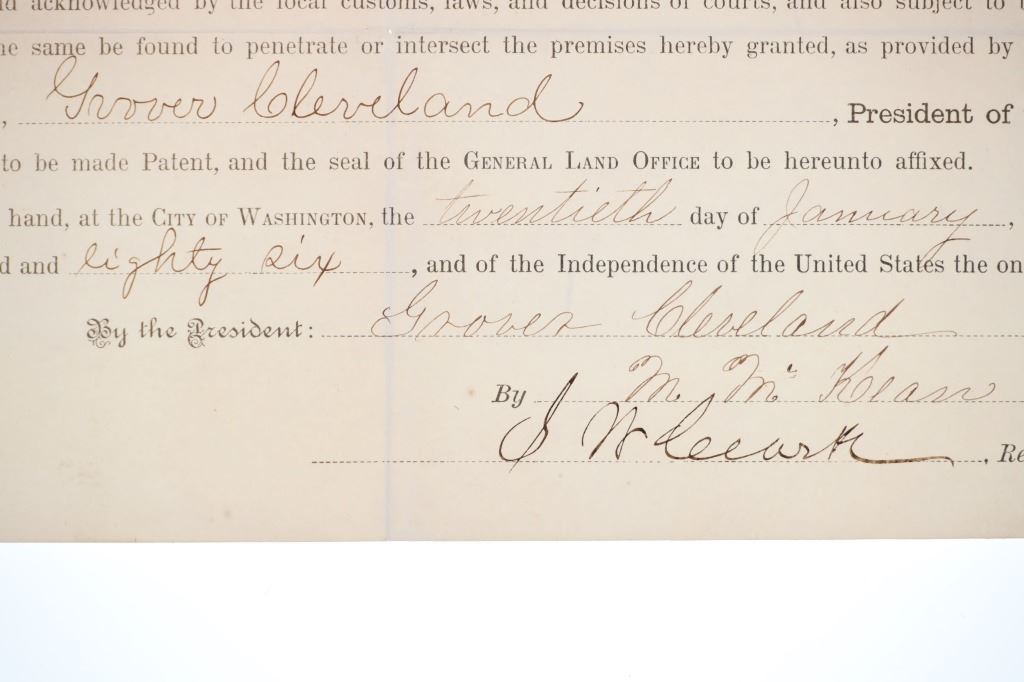 d acknowledged by the local customs, laws, and decisions of courts, and also subject to
he same be found to penetrate or intersect the premises hereby granted, as provided by
, Grover Cleveland, President of
to be made Patent, and the seal of the GENERAL LAND OFFICE to be hereunto affixed.
hand, at the CITY OF WASHINGTON, the twentieth day of January,
d and eighty six, and of the Independence of the United States the on
By the President: Grover Cleveland
By M. McKean
S W Clark, Re